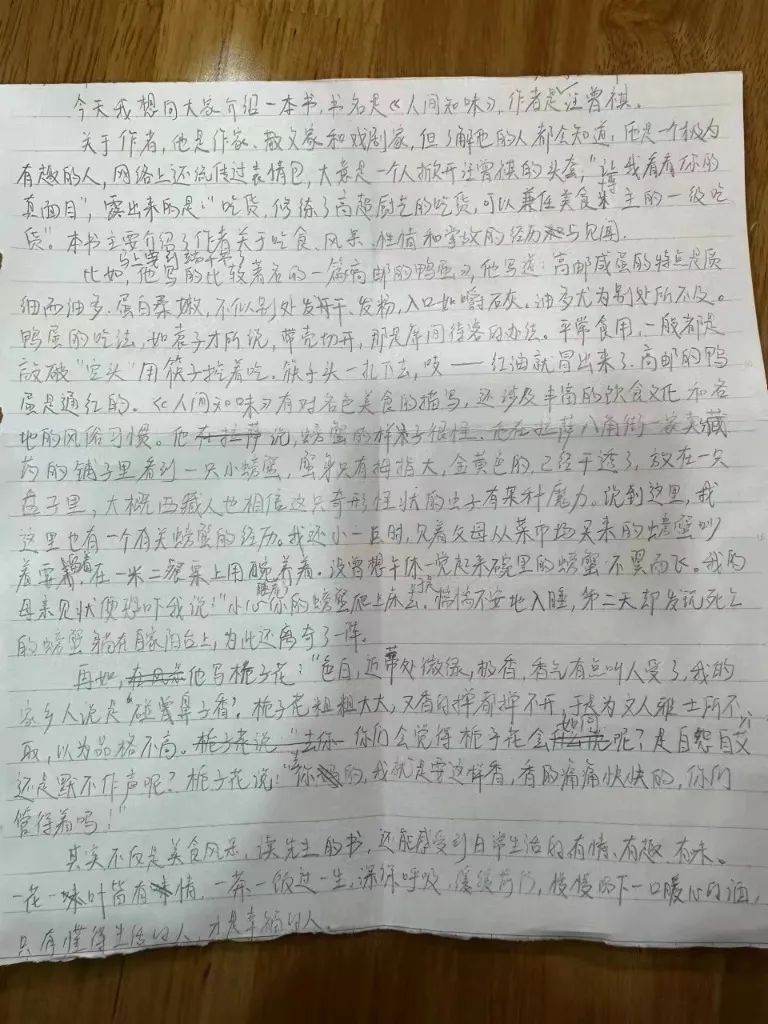 今天我想向大家介绍一本书,书名是《人间知味》,作者是汪曾祺。
关于作者,他是作家、散文家和戏剧家,但了解他的人都会知道,他是一个极为
有趣的人,网络上还流传过表情包,大意是一个人掀开汪曾祺的头套,"让我看看你的
真面目",露出来的是:"吃货,修练了高超厨艺的吃货,可以兼任美食博主的一级吃
货"。本书主要介绍了作者关于吃食、风采、性情和掌故的经历与见闻。
比如,他写的比较著名的一篇高邮的鸭蛋》,他写道:高邮咸蛋的特点是质
细而油多。蛋白柔嫩,不似别处发干、发粉,入口如嚼石灰。油多尤为别处所不及。
鸭蛋的吃法,如袁子才所说,带壳切开,那是席间待客的办法。平常食用,一般都是
敲破"空头"用筷子挖着吃。筷子头一扎下去,吱——红油就冒出来了。高邮的鸭
蛋是通红的。《人间知味》有对各色美食的描写,还涉及丰富的饮食文化和各
地的风俗习惯。他说,螃蟹的样子很怪。他在拉萨八角街一家卖藏
药的铺子里看到一只小螃蟹,蟹身只有拇指大,金黄色的,已经干透了,放在一只
盘子里,大概西藏人也相信这只奇形怪状的虫子有某种魔力。说到这里,我
这里也有一个有关螃蟹的经历。我还小一点时,见着父母从菜市场买来的螃蟹吵
着要养着,在一米二餐桌上用碗养着。没曾想午休一觉起来碗里的螃蟹不翼而飞。我的
母亲见状便恐吓我说:"小心你的螃蟹爬上床去。"于是惴惴不安地入睡,第二天却发现死亡
的螃蟹躺在自家阳台上,为此还离奇了一阵。
再如,他写栀子花:"色白,近蒂处微绿,极香,香气有点叫人受了,我的
家乡人说是"碰鼻子香"。栀子花粗粗大大,又香的掸都掸不开,于是为文人雅士所不
取,以为品格不高。你们会觉得栀子花会如何呢?是自怨自艾
还是默不作声呢?栀子花说:"的,我就是要这样香,香的痛痛快快的,你们
管得着吗!"
其实不仅是美食风采,读先生的书,还能感受到日常生活的有情、有趣、有味。
一花一叶皆有情,一茶一饭过一生,深深呼吸,缓缓前行,慢慢咽下一口暖心的酒,
只有懂得生活的人,才是幸福的人。